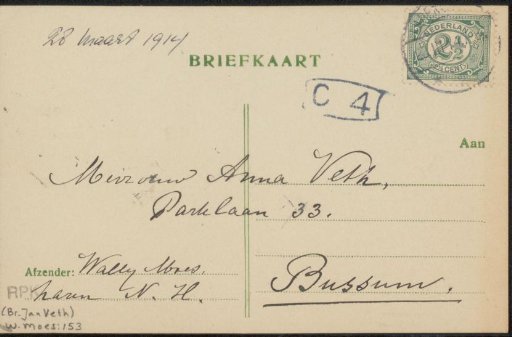 22 maart 1914
BRIEFKAART
NEDERLAND
2½
CENT
C 4
Aan
Mevrouw Anna Veth,
Parklaan 33.
Bussum.
Afzender: Wally Moes.
Laren N. H.
RPK
(Br. Jan Veth)
W. Moes: 153